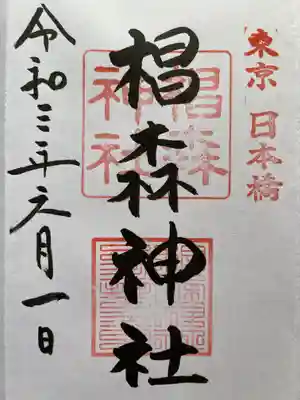 東京 日本橋
椙森神社
椙森
神社
令和三年六月一日